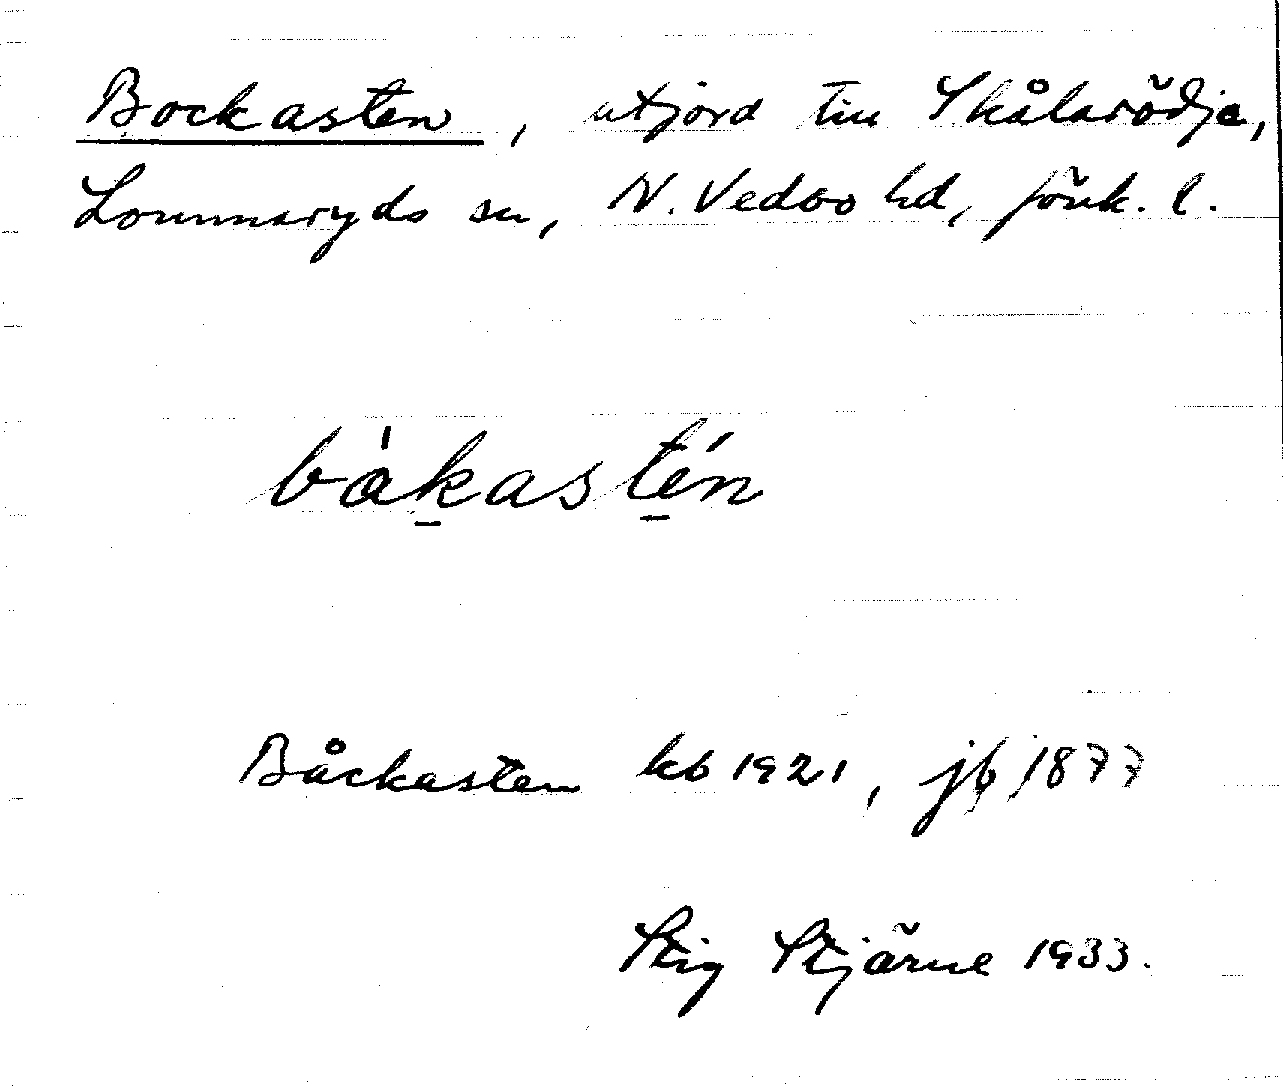 Bockasten, utjord till Skålarödja,
Lommaryds sn, N. Vedbo hd, Jönk. l.
bàkastén
Båckasten kb 1921, jb 1877
Stig Stjärne 1933.